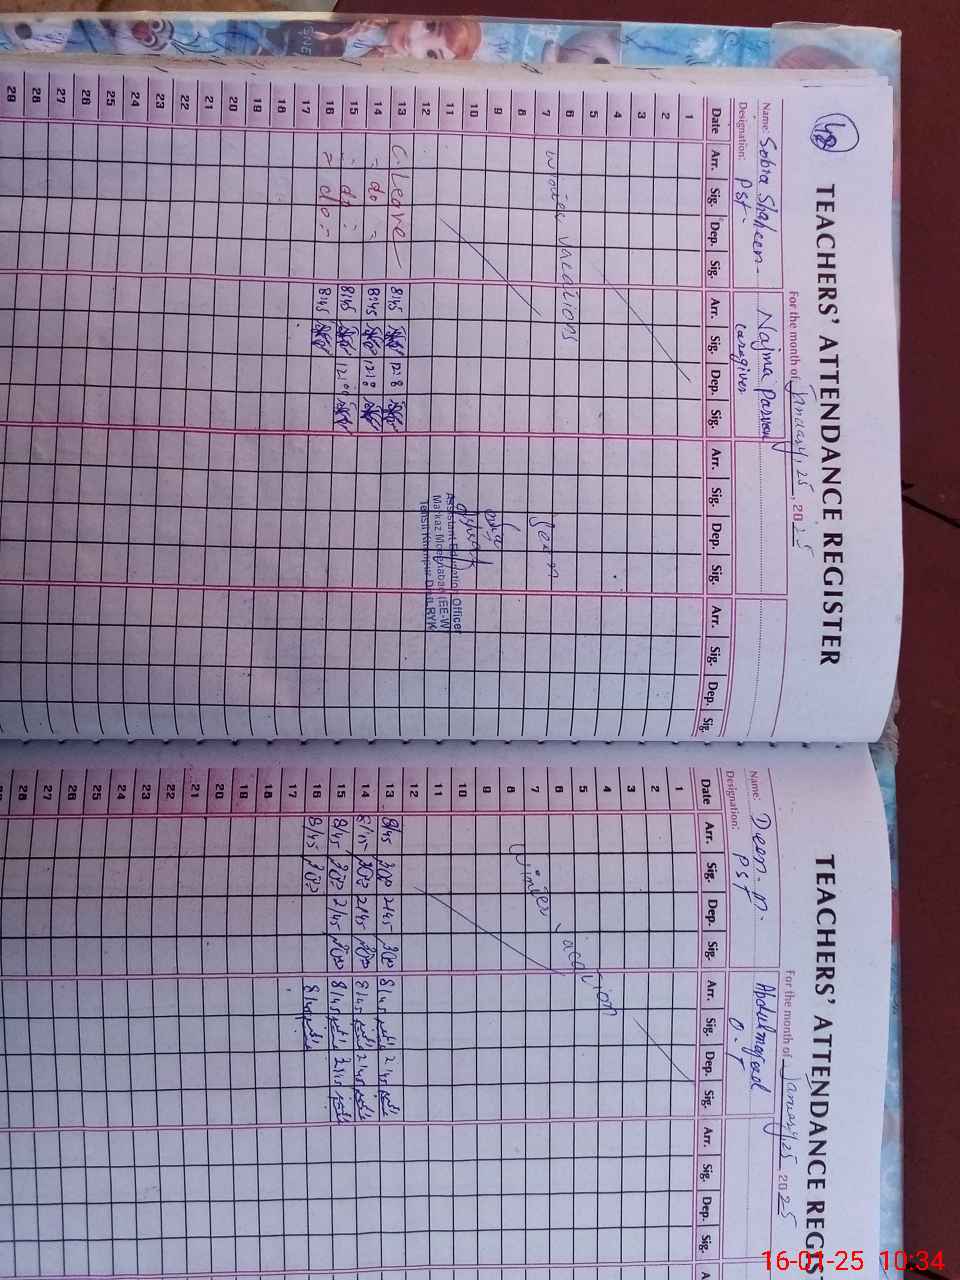 48
TEACHERS' ATTENDANCE REGISTER
For the month of January, 25, 2025
Name: Sobia Shaheen - Najma Parveen
Designation: PST caregiver
Date Arr. Sig. Dep. Sig. Arr. Sig. Dep. Sig. Arr. Sig. Dep. Sig. Arr. Sig. Dep. Sig.
1
2
3
4
5
6
7
8
9
10
11
12
13 C. Leave 8:45 12:8
14 " do " 8:45
15 " do " 8:45
16 " do " 8:45
17
18
19
20
21
22
23
24
25
26
27
28
29
winter vacations
Seen
Assistant Education Officer
Markaz Moeenabad (EE-W)
Tehsil Khanpur Distt. RYK
TEACHERS' ATTENDANCE REGIS
For the month of January, 25 2025
Name: Deen. M. Abdulmajeed
Designation: PST O.T
Date Arr. Sig. Dep. Sig. Arr. Sig. Dep. Sig. Arr. Sig. Dep. Sig. A
1
2
3
4
5
6
7
8
9
10
11
12
13 8/45 2/45 8/45 2/45
14 8/45 2/45 8/45 2/45
15 8/45 2/45 8/45 2/45
16 8/45 8/45
17
18
19
20
21
22
23
24
25
26
27
28
winter vacation
16-01-25 10:34